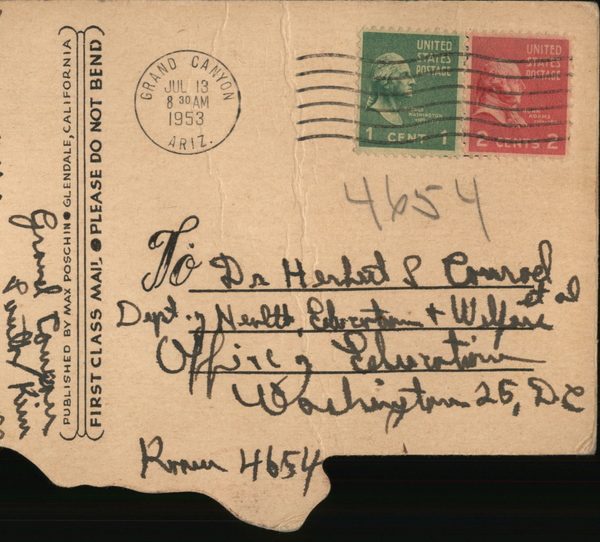 GRAND CANYON
JUL 13
8 30 AM
1953
ARIZ.
UNITED
STATES
POSTAGE
1 CENT 1
UNITED
STATES
POSTAGE
2 CENTS 2
4654
To Dr Herbert S Conrad
et al
Dept. of Health, Education + Welfare
Office of Education
Washington 25, D.C
Room 4654
PUBLISHED BY MAX POSCHIN • GLENDALE, CALIFORNIA
FIRST CLASS MAIL • PLEASE DO NOT BEND
Grand Canyon
South Rim